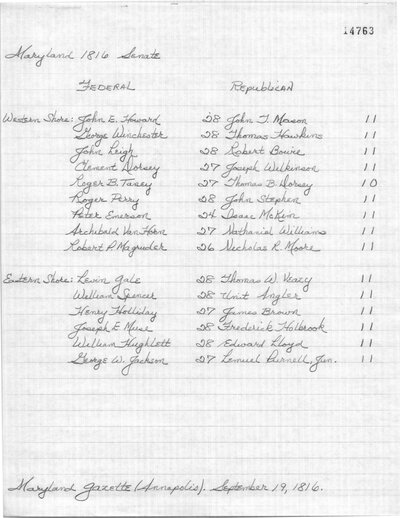 14763
Maryland 1816 Senate
FEDERAL REPUBLICAN
Western Shore: John E. Howard 28 John T. Mason 11
George Winchester 28 Thomas Hawkins 11
John Leigh 28 Robert Bowie 11
Clement Dorsey 27 Joseph Wilkinson 11
Roger B. Taney 27 Thomas B. Dorsey 10
Roger Perry 28 John Stephen 11
Peter Emerson 24 Isaac McKim 11
Archibald Van Horn 27 Nathaniel Williams 11
Robert P. Magruder 26 Nicholas R. Moore 11
Eastern Shore: Levin Gale 28 Thomas W. Veazy 11
William Spencer 28 Unit Angler 11
Henry Holliday 27 James Brown 11
Joseph E. Muse 28 Frederick Holbrook 11
William Hughlett 28 Edward Lloyd 11
George W. Jackson 27 Lemuel Purnell, Jun. 11
Maryland Gazette (Annapolis). September 19, 1816.